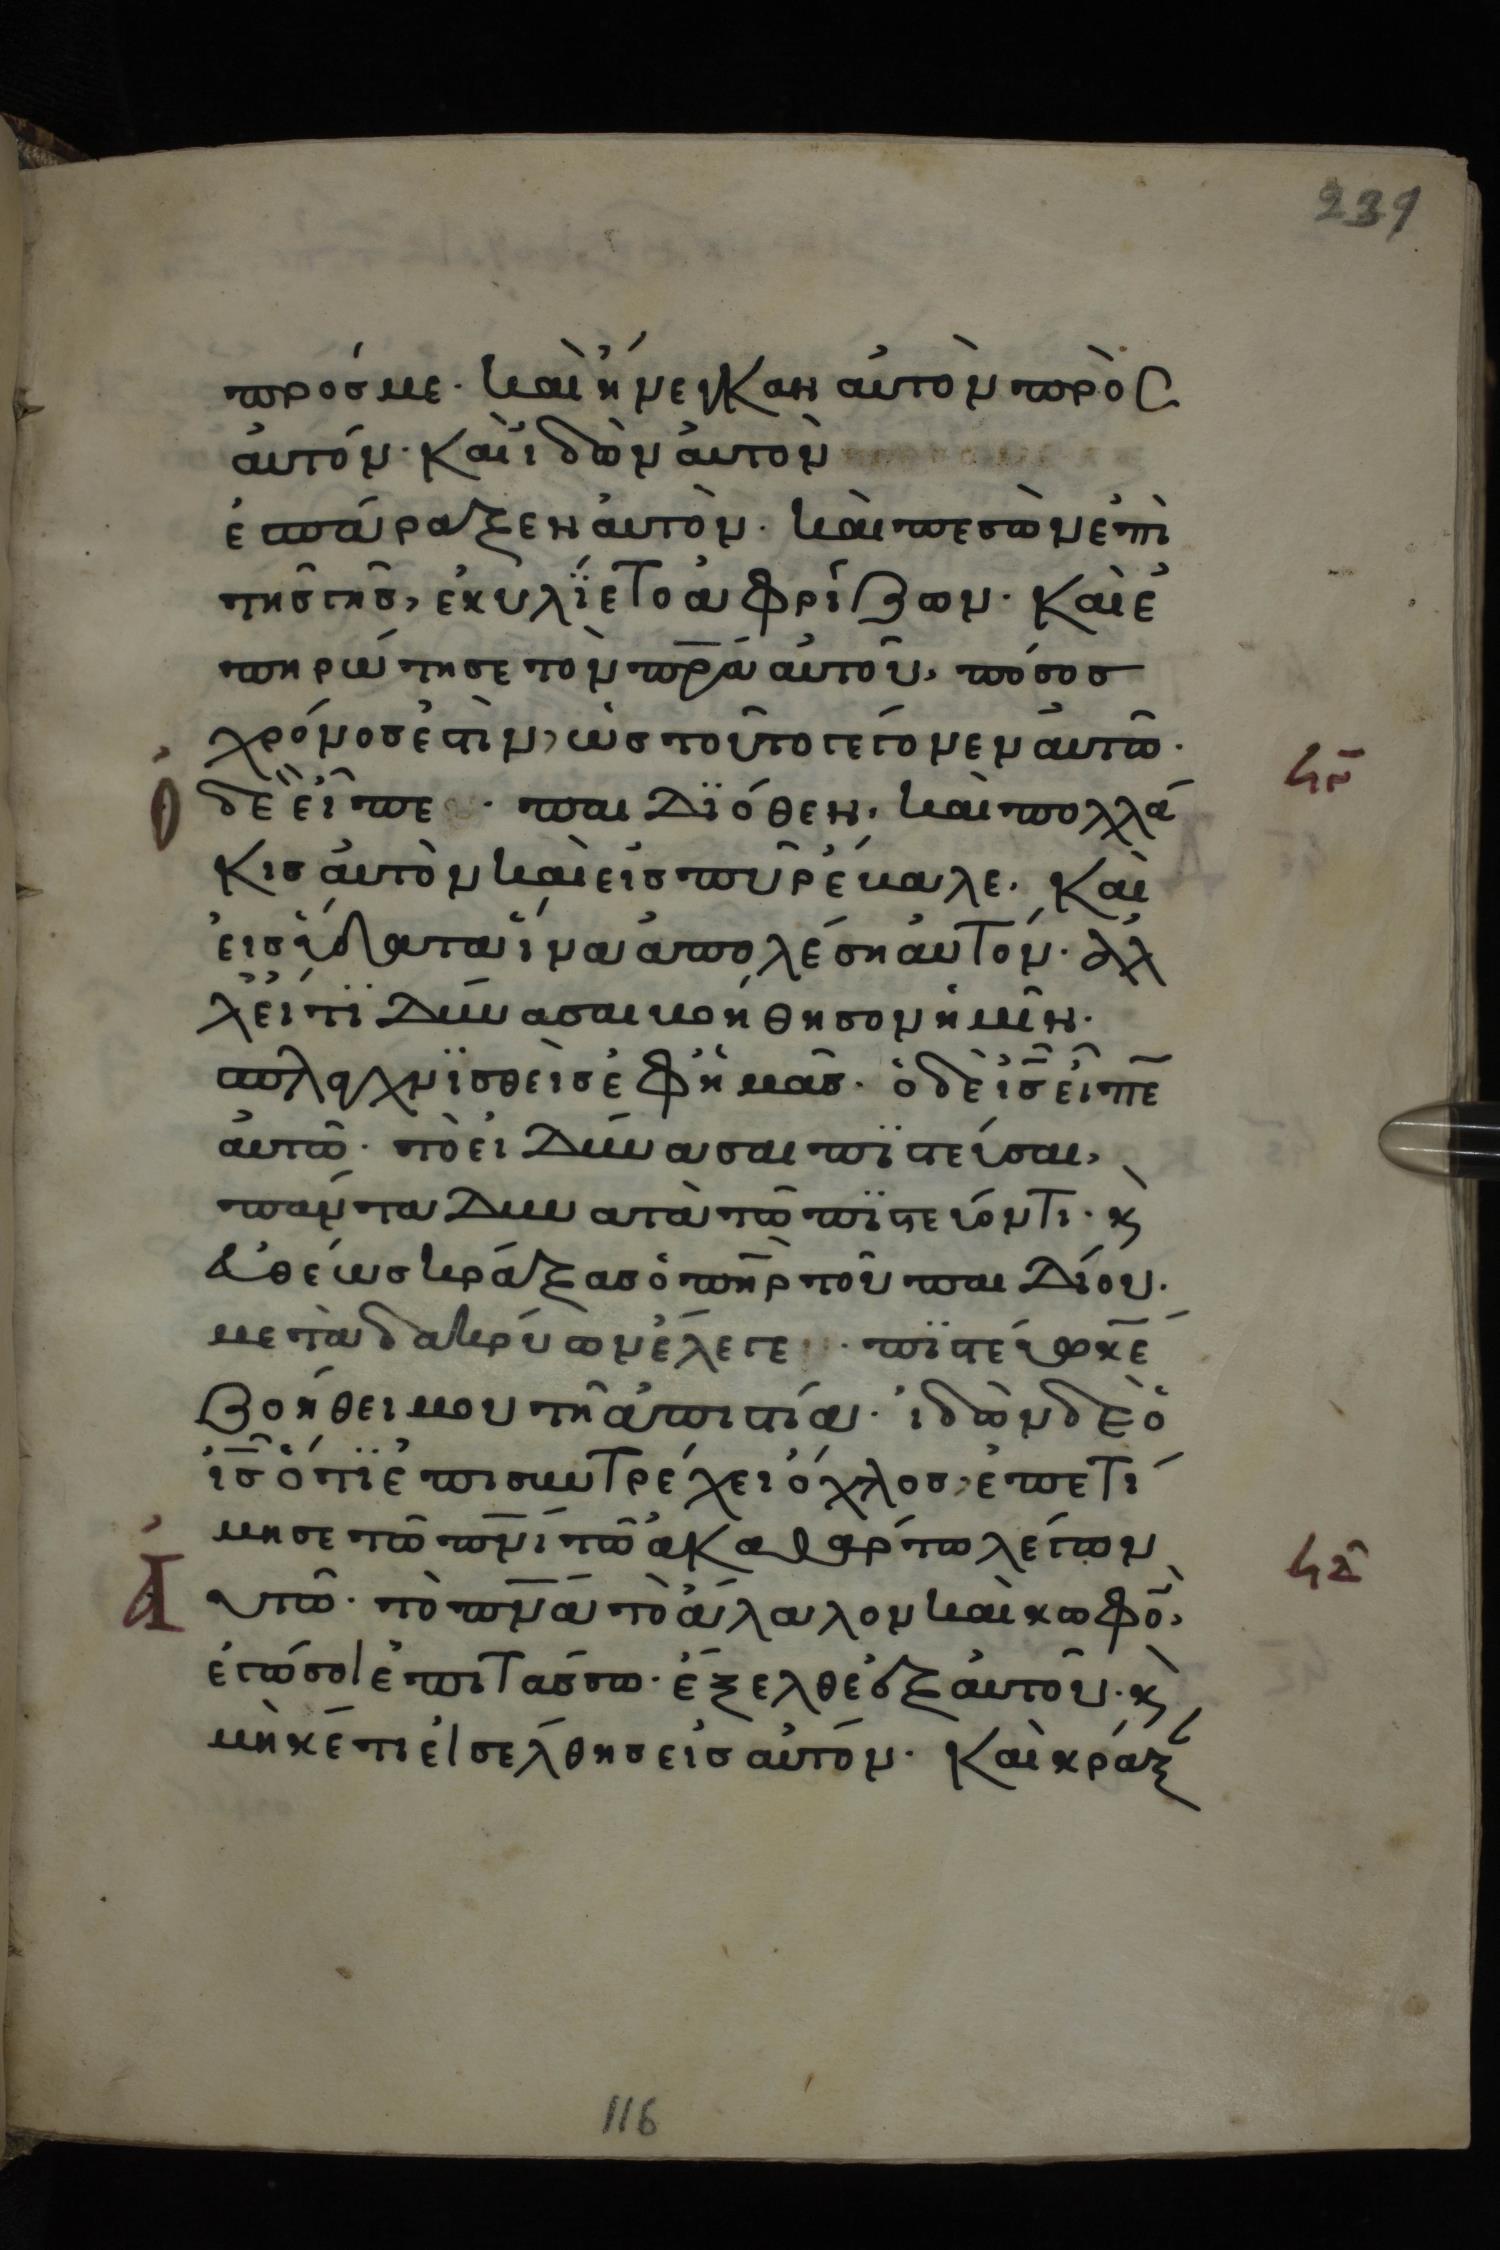 239
πρόσ με· καὶ ἤνεγκαν αὐτὸν πρὸς
αὐτόν· καὶ ἰδὼν αὐτὸν
ἐσπάραξεν αὐτὸν· καὶ πεσὼν ἐπὶ
τῆσ γῆσ, ἐκυλΐετο ἀφρίζων· καὶ ἐ
πηρώτησε τὸν πρ̅α αὐτοῦ, πόσοσ
χρόνοσ ἐστὶν, ὡσ τοῦτο γέγονεν αὐτῶ·
Ὁ δὲ εἶπε · παιδϊόθεν· καὶ πολλά
κισ αὐτὸν καὶ εἰσ πῦρ ἔβαλε· καὶ
εἰσ ὕδατα ἵνα ἀπολέση αὐτόν· ἀλ
λ' εἴ τϊ δύνασαι βοήθησον ἡμῖν·
σπλαγχνϊσθεὶσ ἐφ' ἡμᾶσ· ὁ δὲ ι̅σ εἶπε
αὐτῶ· τὸ εἰ δύνασαι πϊστεύσαι,
πάντα δυνατὰ τῶ πϊστεύοντι· κ(αὶ)
εὐθέωσ κράξασ ὁ πη̅ρ τοῦ παιδίου·
μετὰ δακρύων ἔλεγε · πϊστεύω κ̅ε
βοήθει μου τῆ ἀπιστία· ἰδὼν δὲ ὁ
ι̅σ ὅτϊ ἐπισυντρέχει ὄχλοσ, ἐπετί
μησε τῶ πν̅ι τῶ ἀκαθάρτω λέγων
αὐτῶ· τὸ πν̅α τὸ ἄλαλον καὶ κωφὸ,
ἐγώ σοι ἐπιτάσσω· ἔξελθε ἐξ αὐτοῦ· κ(αὶ)
μηκέτι εἰσέλθησ εἰσ αὐτόν· καὶ κράξ
116